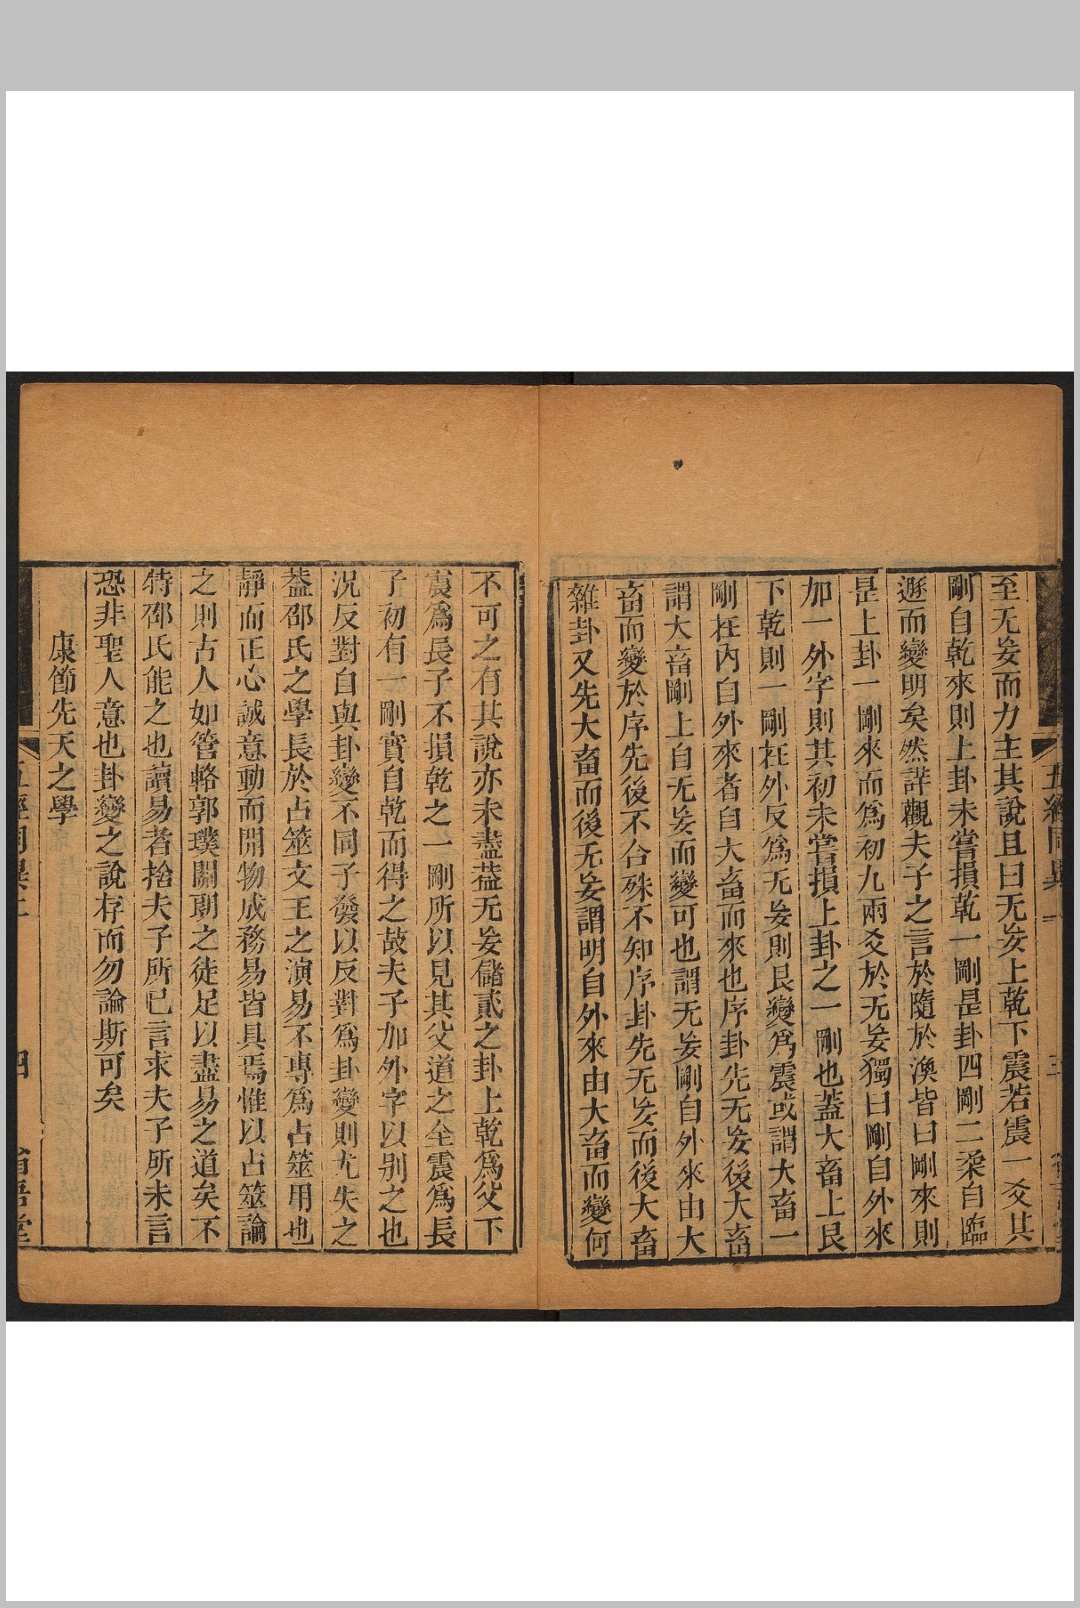 至无妄而力主其說且曰无妄上乾下震若震一爻其
剛自乾來則上卦未嘗損乾一剛是卦四剛二柔自臨
遯而變明矣然詳觀夫子之言於隨於渙皆曰剛來則
是上卦一剛來而爲初九兩爻於无妄獨曰剛自外來
加一外字則其初未嘗損上卦之一剛也蓋大畜上艮
下乾則一剛在外反爲无妄則艮變爲震或謂大畜一
剛在內自外來者自大畜而來也序卦先无妄後大畜
謂大畜剛上自无妄而變可也謂无妄剛自外來由大
畜而變於序先後不合殊不知序卦先无妄而後大畜
雜卦又先大畜而後无妄謂明自外來由大畜而變何
不可之有其說亦未盡葢无妄儲貳之卦上乾爲父下
震爲長子不損乾之一剛所以見其父道之全震爲長
子初有一剛實自乾而得之故夫子加外字以別之也
況反對自與卦變不同子發以反對爲卦變則尤失之
葢邵氏之學長於占筮文王之演易不專爲占筮用也
靜而正心誠意動而開物成務易皆具焉惟以占筮論
之則古人如管輅郭璞關朗之徒足以盡易之道矣不
特邵氏能之也讀易者捨夫子所已言求夫子所未言
恐非聖人意也卦變之說存而勿論斯可矣
康節先天之學
五經同異二
四
省吾堂